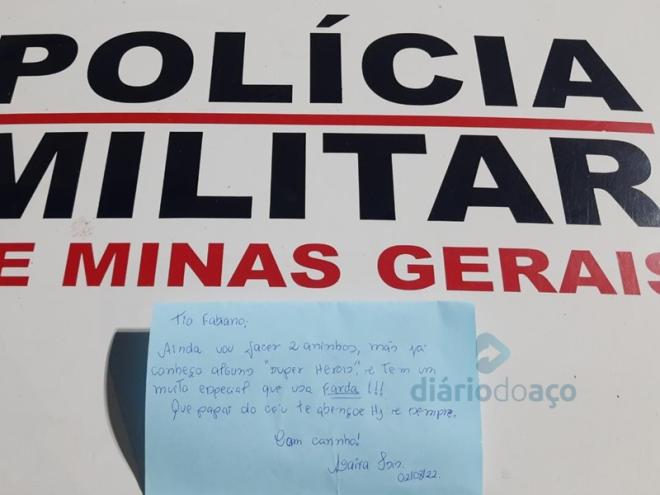 POLÍCIA
MILITAR
E MINAS GERAIS
Tio Fabiano,
Ainda vou fazer 2 aninhos, mas já
conheço alguns "super Herois", e tem um
muito especial que usa Farda !!!
Que papai do céu te abençoe Hj e sempre.
Com carinho!
02/08/22.
diáriodoaço